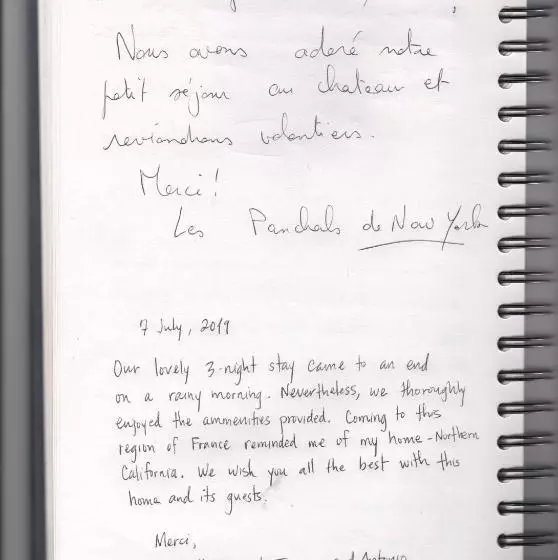 Nous avons adoré notre
petit séjour au chateau et
reviendrons volontiers.
Merci!
Les Panchals de New York
7 July, 2019
Our lovely 3-night stay came to an end
on a rainy morning. Nevertheless, we thoroughly
enjoyed the ammenities provided. Coming to this
region of France reminded me of my home - Northern
California. We wish you all the best with this
home and its guests.
Merci,
and Antonio